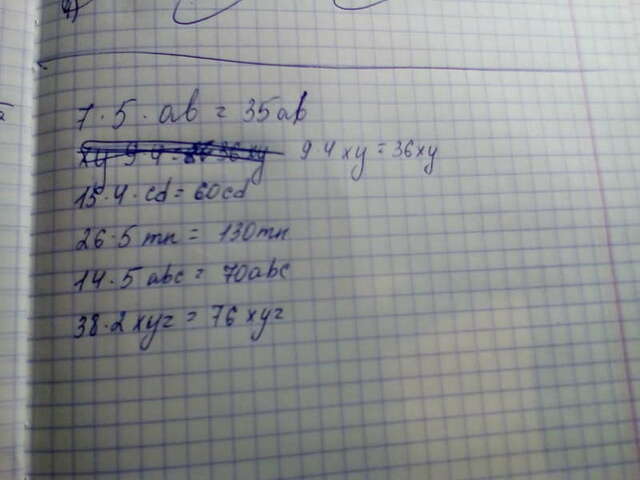 4)
7·5·ab = 35ab
9 4 xy = 36xy
15·4·cd = 60cd
26·5mn = 130mn
14·5abc = 70abc
38·2xyz = 76xyz